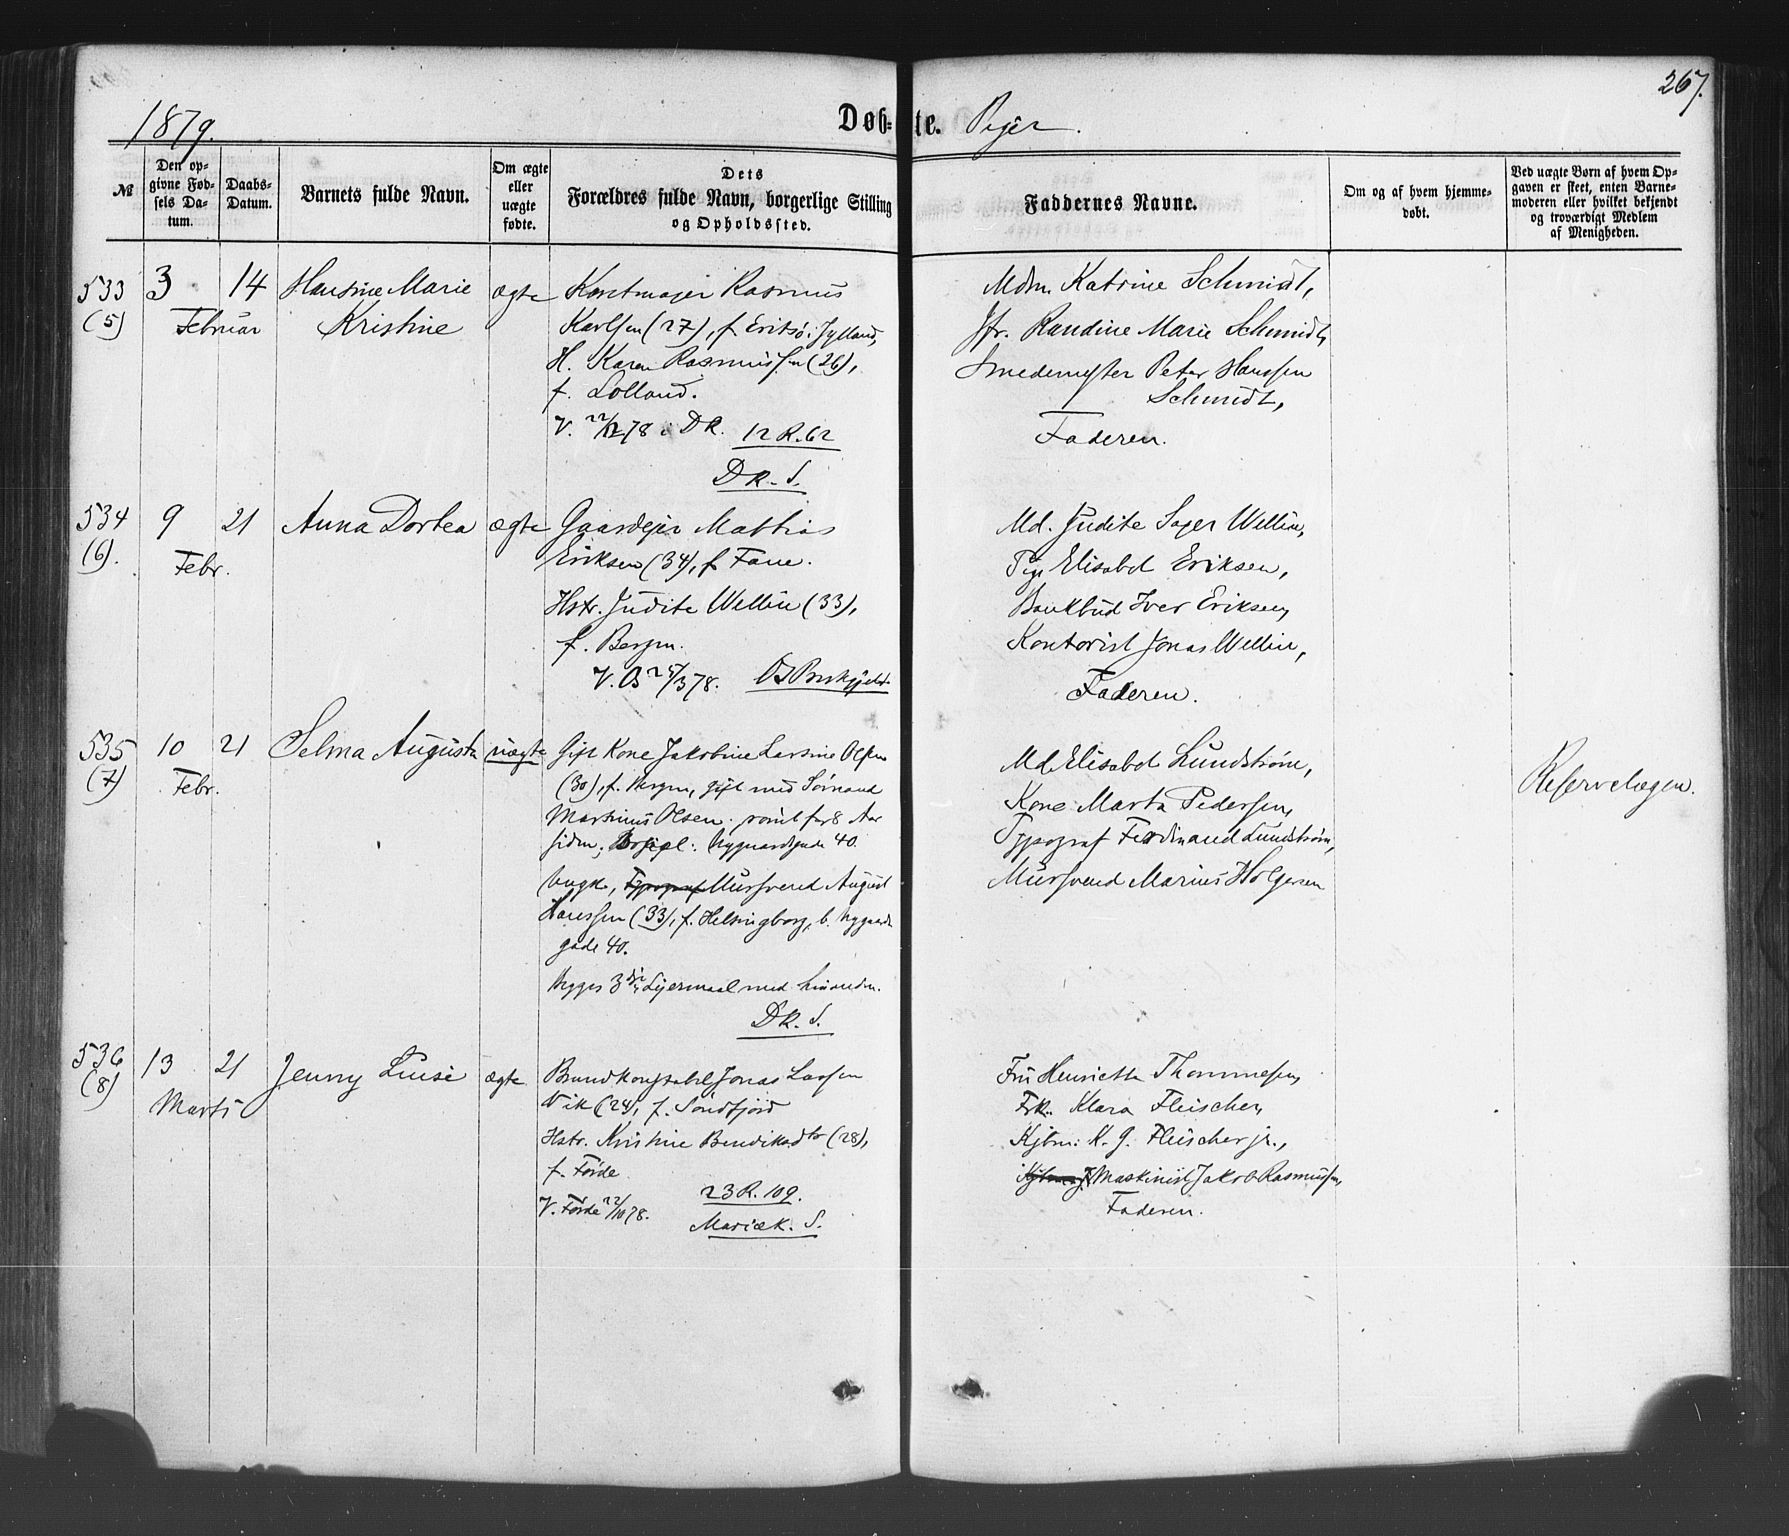 267.
1879.
Døb=te. Piger.
№
Den op=
givne Fød=
sels Da=
tum.
Daabs=
Datum.
Barnets fulde Navn.
Om ægte
eller
uægte
fødte.
Dets
Forældres fulde Navn, borgerlige Stilling
og Opholdssted.
Faddernes Navne.
Om og af hvem hjemme=
døbt.
Ved uægte Børn af hvem Op=
gaven er skeet, enten Barne=
moderen eller hvilket bekjendt
og troværdigt Medlem
af Menigheden.
533
(5)
3
Februar
14
Hansine Marie
Kristine
ægte
Rasmus
Karlsen (27), f. Eritsø i Jylland,
H. Karen Rasmussen (26),
f. Lolland.
V. 22/12 78 i DK. 12 R. 62
DK. S.
Mdm. Katrine Schmidt,
Jfr. Randine Marie Schmidt,
Smedemester Peter Hanssen
Schmidt,
Faderen.
534
(6).
9
Febr.
21
Anna Dortea
ægte
Gaardejer Mathias
Eriksen (34), f. Fane.
Hstr. Judite Wellin (33),
f. Bergen.
V. 25/3 78.
Md. Judite Wellin,
Pige Elisabet Eriksen,
Bankbud Iver Eriksen,
Kontorist Jonas Wellin,
Faderen.
535
(7)
10
Febr.
21
Selma Augusta
uægte
Gift Kone Jakobine Larsine Olsen
(30), f. Bergen, gift med Sømand
Martinus Olsen. rømt for 8 Aar
siden, Nygaardsgade 40.
Ungk., Typograf Mursvend August
Hanssen (33), f. Helsingborg, b. Nygaards
gade 40.
Begges 3die Lejermaal med hinanden.
DK. S.
Md. Elisabet Lundstrøm,
Kone Marta Pedersen,
Typograf Ferdinand Lundstrøm,
Mursvend Marius Holgersen
Reservelægen.
536
(8)
13
Marts
21
Jenny Luise
ægte
Brandkonstabel Jonas Larsen
Vik (24), f. Søndfjord
Hstr. Kristine Bendiksdtr (28),
f. Førde
V. Førde 22/10 78. 23 R. 109.
Mariæk. S.
Fru Henriette Thommesen,
Frk. Klara Fleischer,
Kjbm. K. G. Fleischer jr.,
Maskinist Jakob Rasmussen,
Faderen.